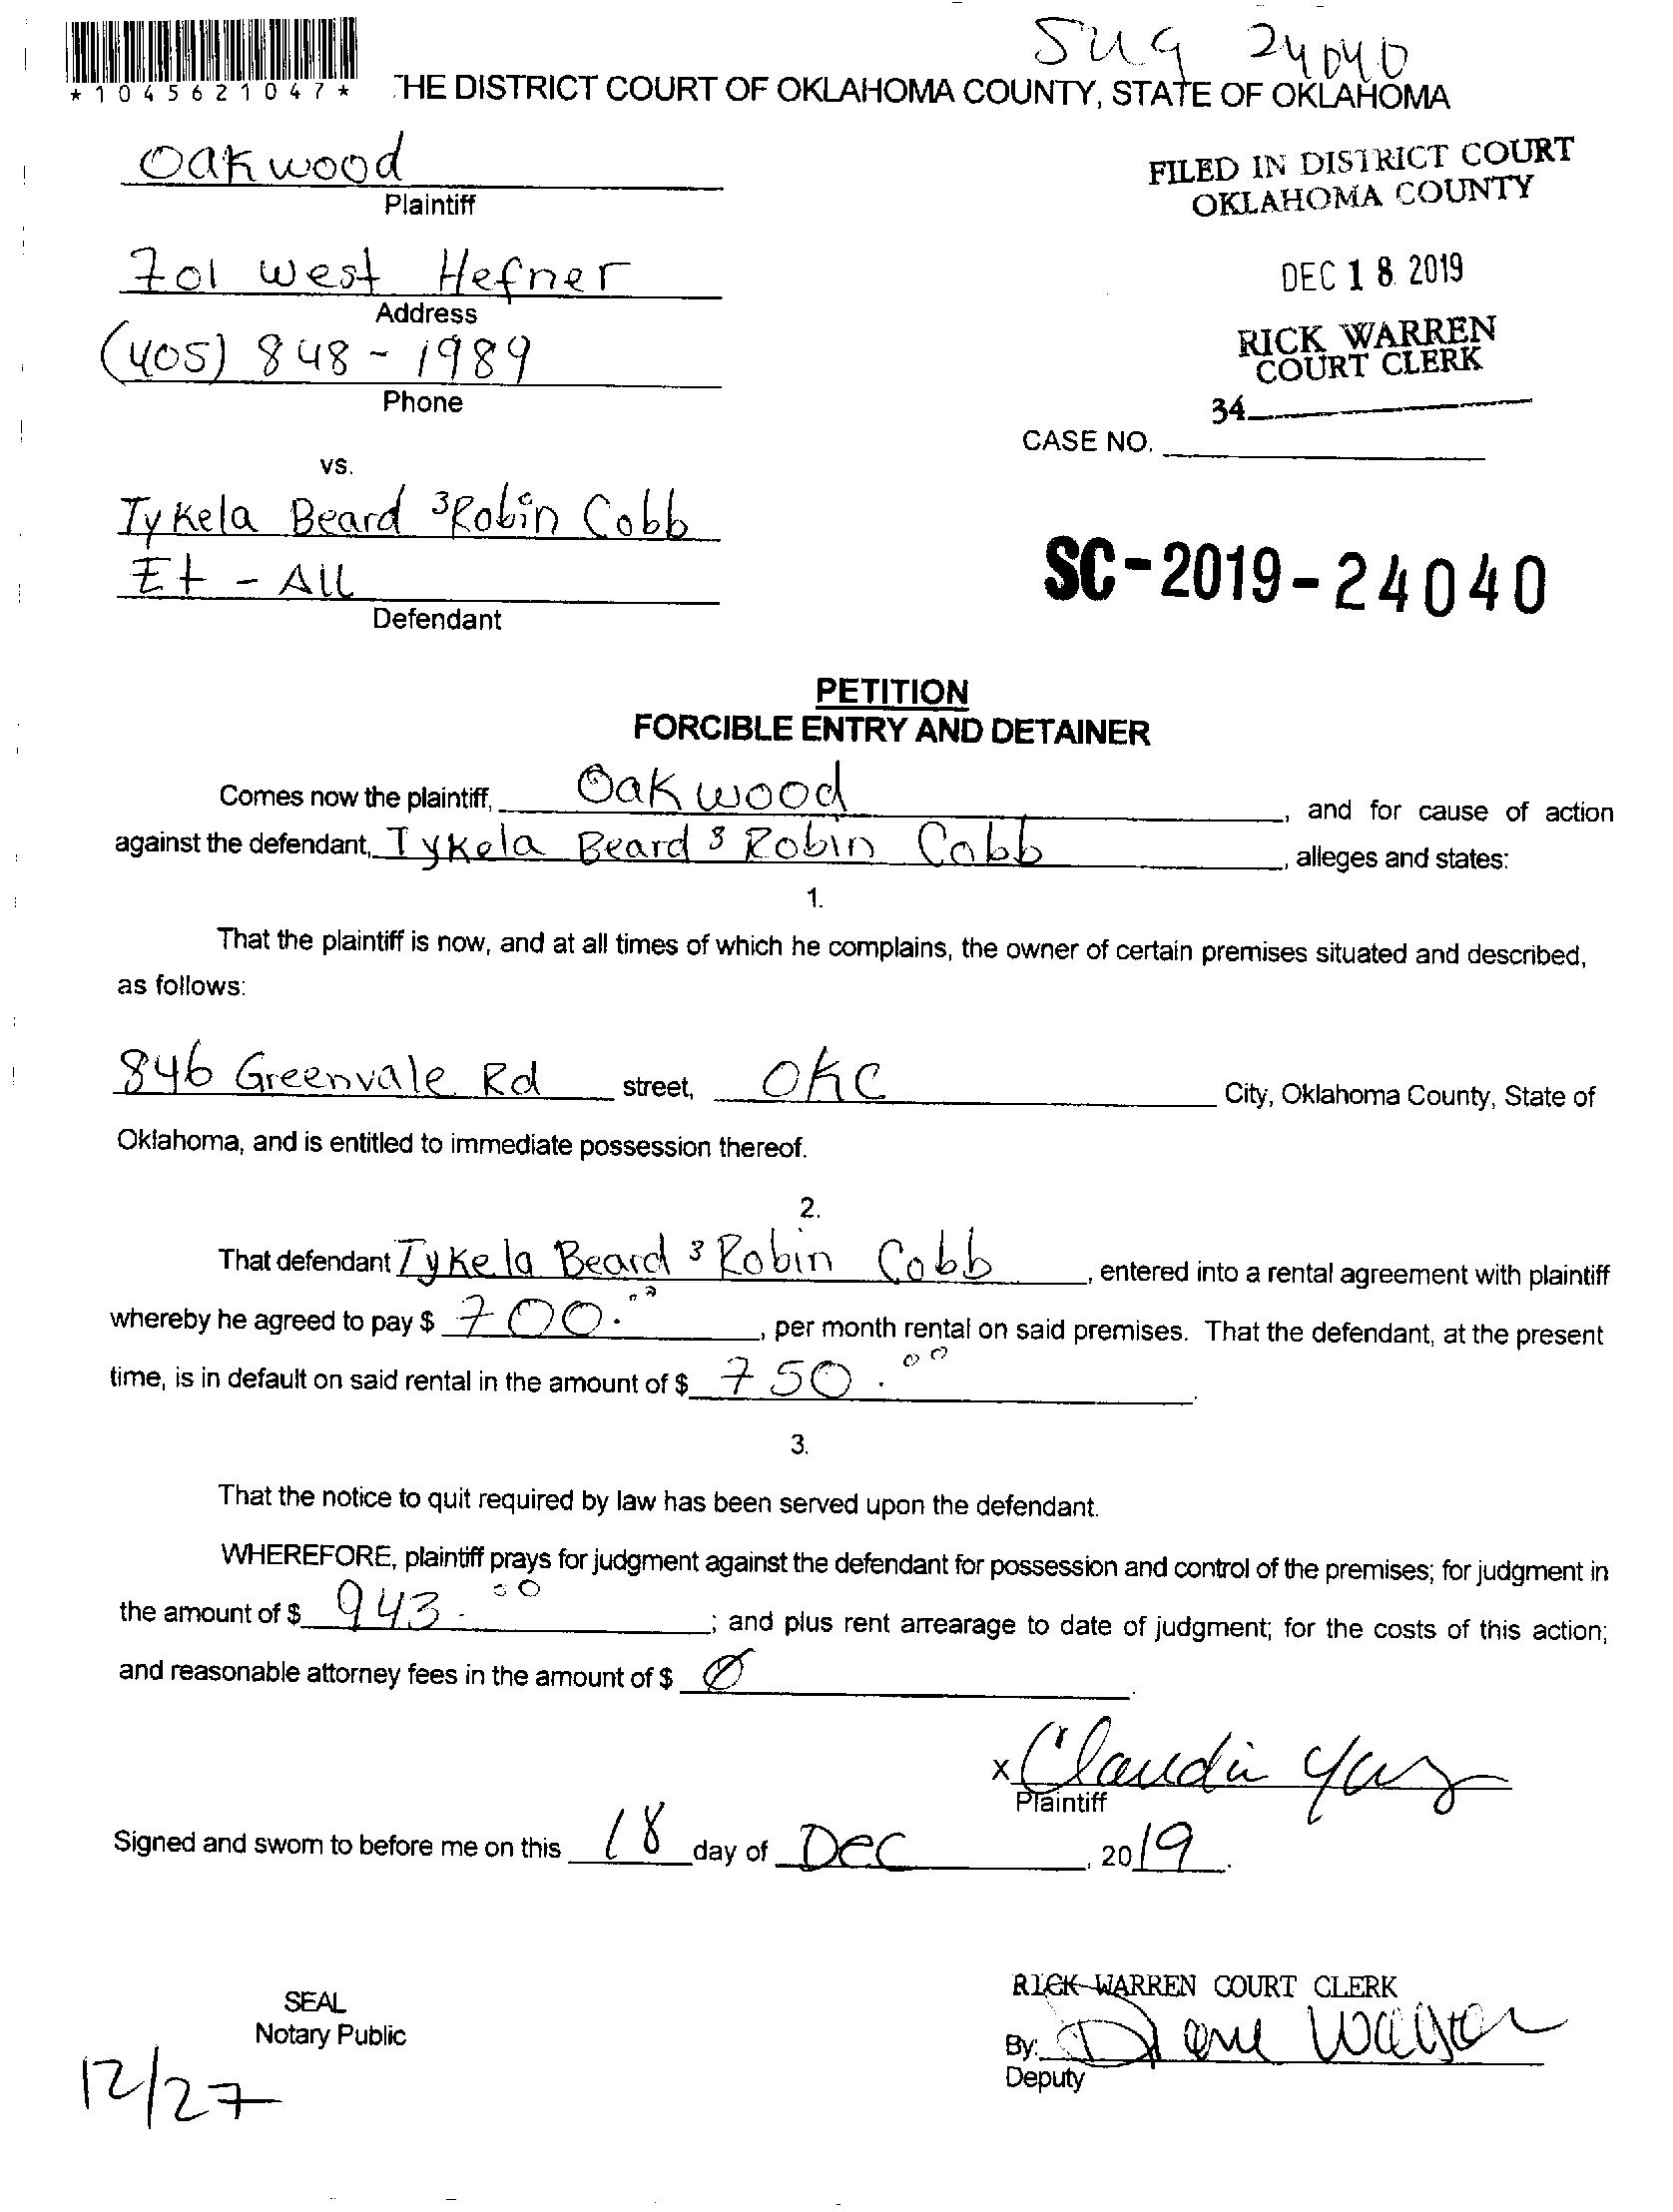 SUG 24040
*1045621047*
THE DISTRICT COURT OF OKLAHOMA COUNTY, STATE OF OKLAHOMA
Oakwood
Plaintiff
FILED IN DISTRICT COURT
OKLAHOMA COUNTY
701 West Hefner
Address
DEC 18 2019
(405) 848-1989
Phone
RICK WARREN
COURT CLERK
34
CASE NO.
vs.
Tykela Beard & Robin Cobb
Et-All
Defendant
SC-2019-24040
PETITION
FORCIBLE ENTRY AND DETAINER
Comes now the plaintiff, Oakwood, and for cause of action
against the defendant, Tykela Beard & Robin Cobb, alleges and states:
1.
That the plaintiff is now, and at all times of which he complains, the owner of certain premises situated and described,
as follows:
846 Greenvale Rd street, OKC City, Oklahoma County, State of
Oklahoma, and is entitled to immediate possession thereof.
2.
That defendant Tykela Beard & Robin Cobb, entered into a rental agreement with plaintiff
whereby he agreed to pay $ 700.00, per month rental on said premises. That the defendant, at the present
time, is in default on said rental in the amount of $ 750.00.
3.
That the notice to quit required by law has been served upon the defendant.
WHEREFORE, plaintiff prays for judgment against the defendant for possession and control of the premises; for judgment in
the amount of $ 943.00; and plus rent arrearage to date of judgment; for the costs of this action;
and reasonable attorney fees in the amount of $ Ø.
x Claudia
Plaintiff
Signed and sworn to before me on this 18 day of Dec, 2019.
SEAL
Notary Public
12/27
RICK WARREN COURT CLERK
By: Diane
Deputy